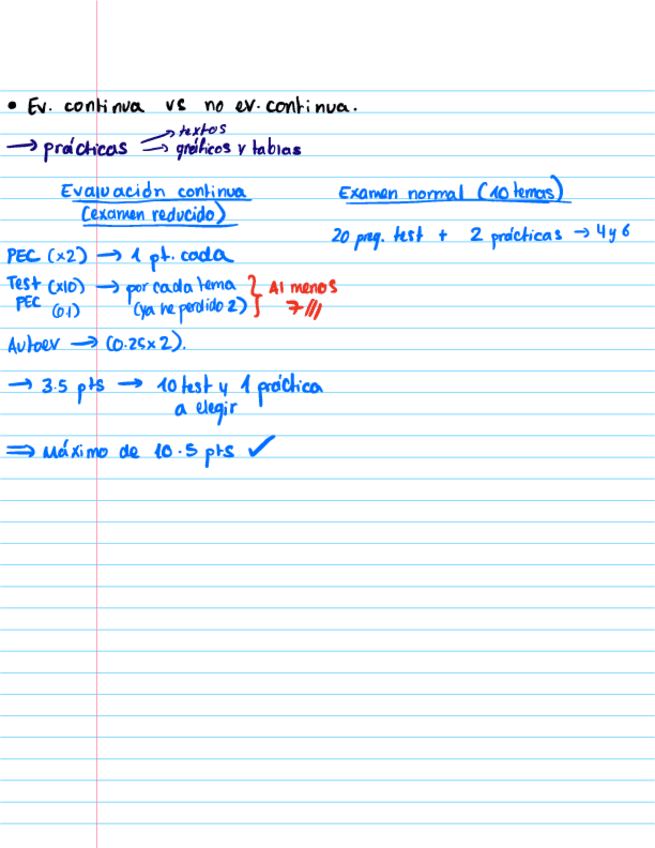 • Ev. continua vs no ev. continua.
→ prácticas → textos
→ gráficos y tablas
Evaluación continua
(examen reducido)
PEC (x2) → 1 pt. cada
Test (x10) → por cada tema } Al menos
PEC (0.1) (ya he perdido 2) } 7///
Autoev → (0.25x2).
→ 3.5 pts → 10 test y 1 práctica
a elegir
⇒ Máximo de 10.5 pts ✓
Examen normal (10 temas)
20 preg. test + 2 prácticas → 4 y 6